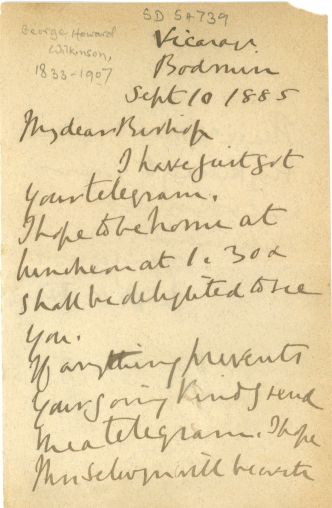 SD SA739
George Howard
Wilkinson,
1833-1907
Vicarage
Bodmin
Sept 10 1885
My dear Bishop
I have just got
your telegram.
I hope to be home at
luncheon at 1.30 &
shall be delighted to see
you.
If anything prevents
your going kindly send
me a telegram. I hope
Mrs Selwyn will be with